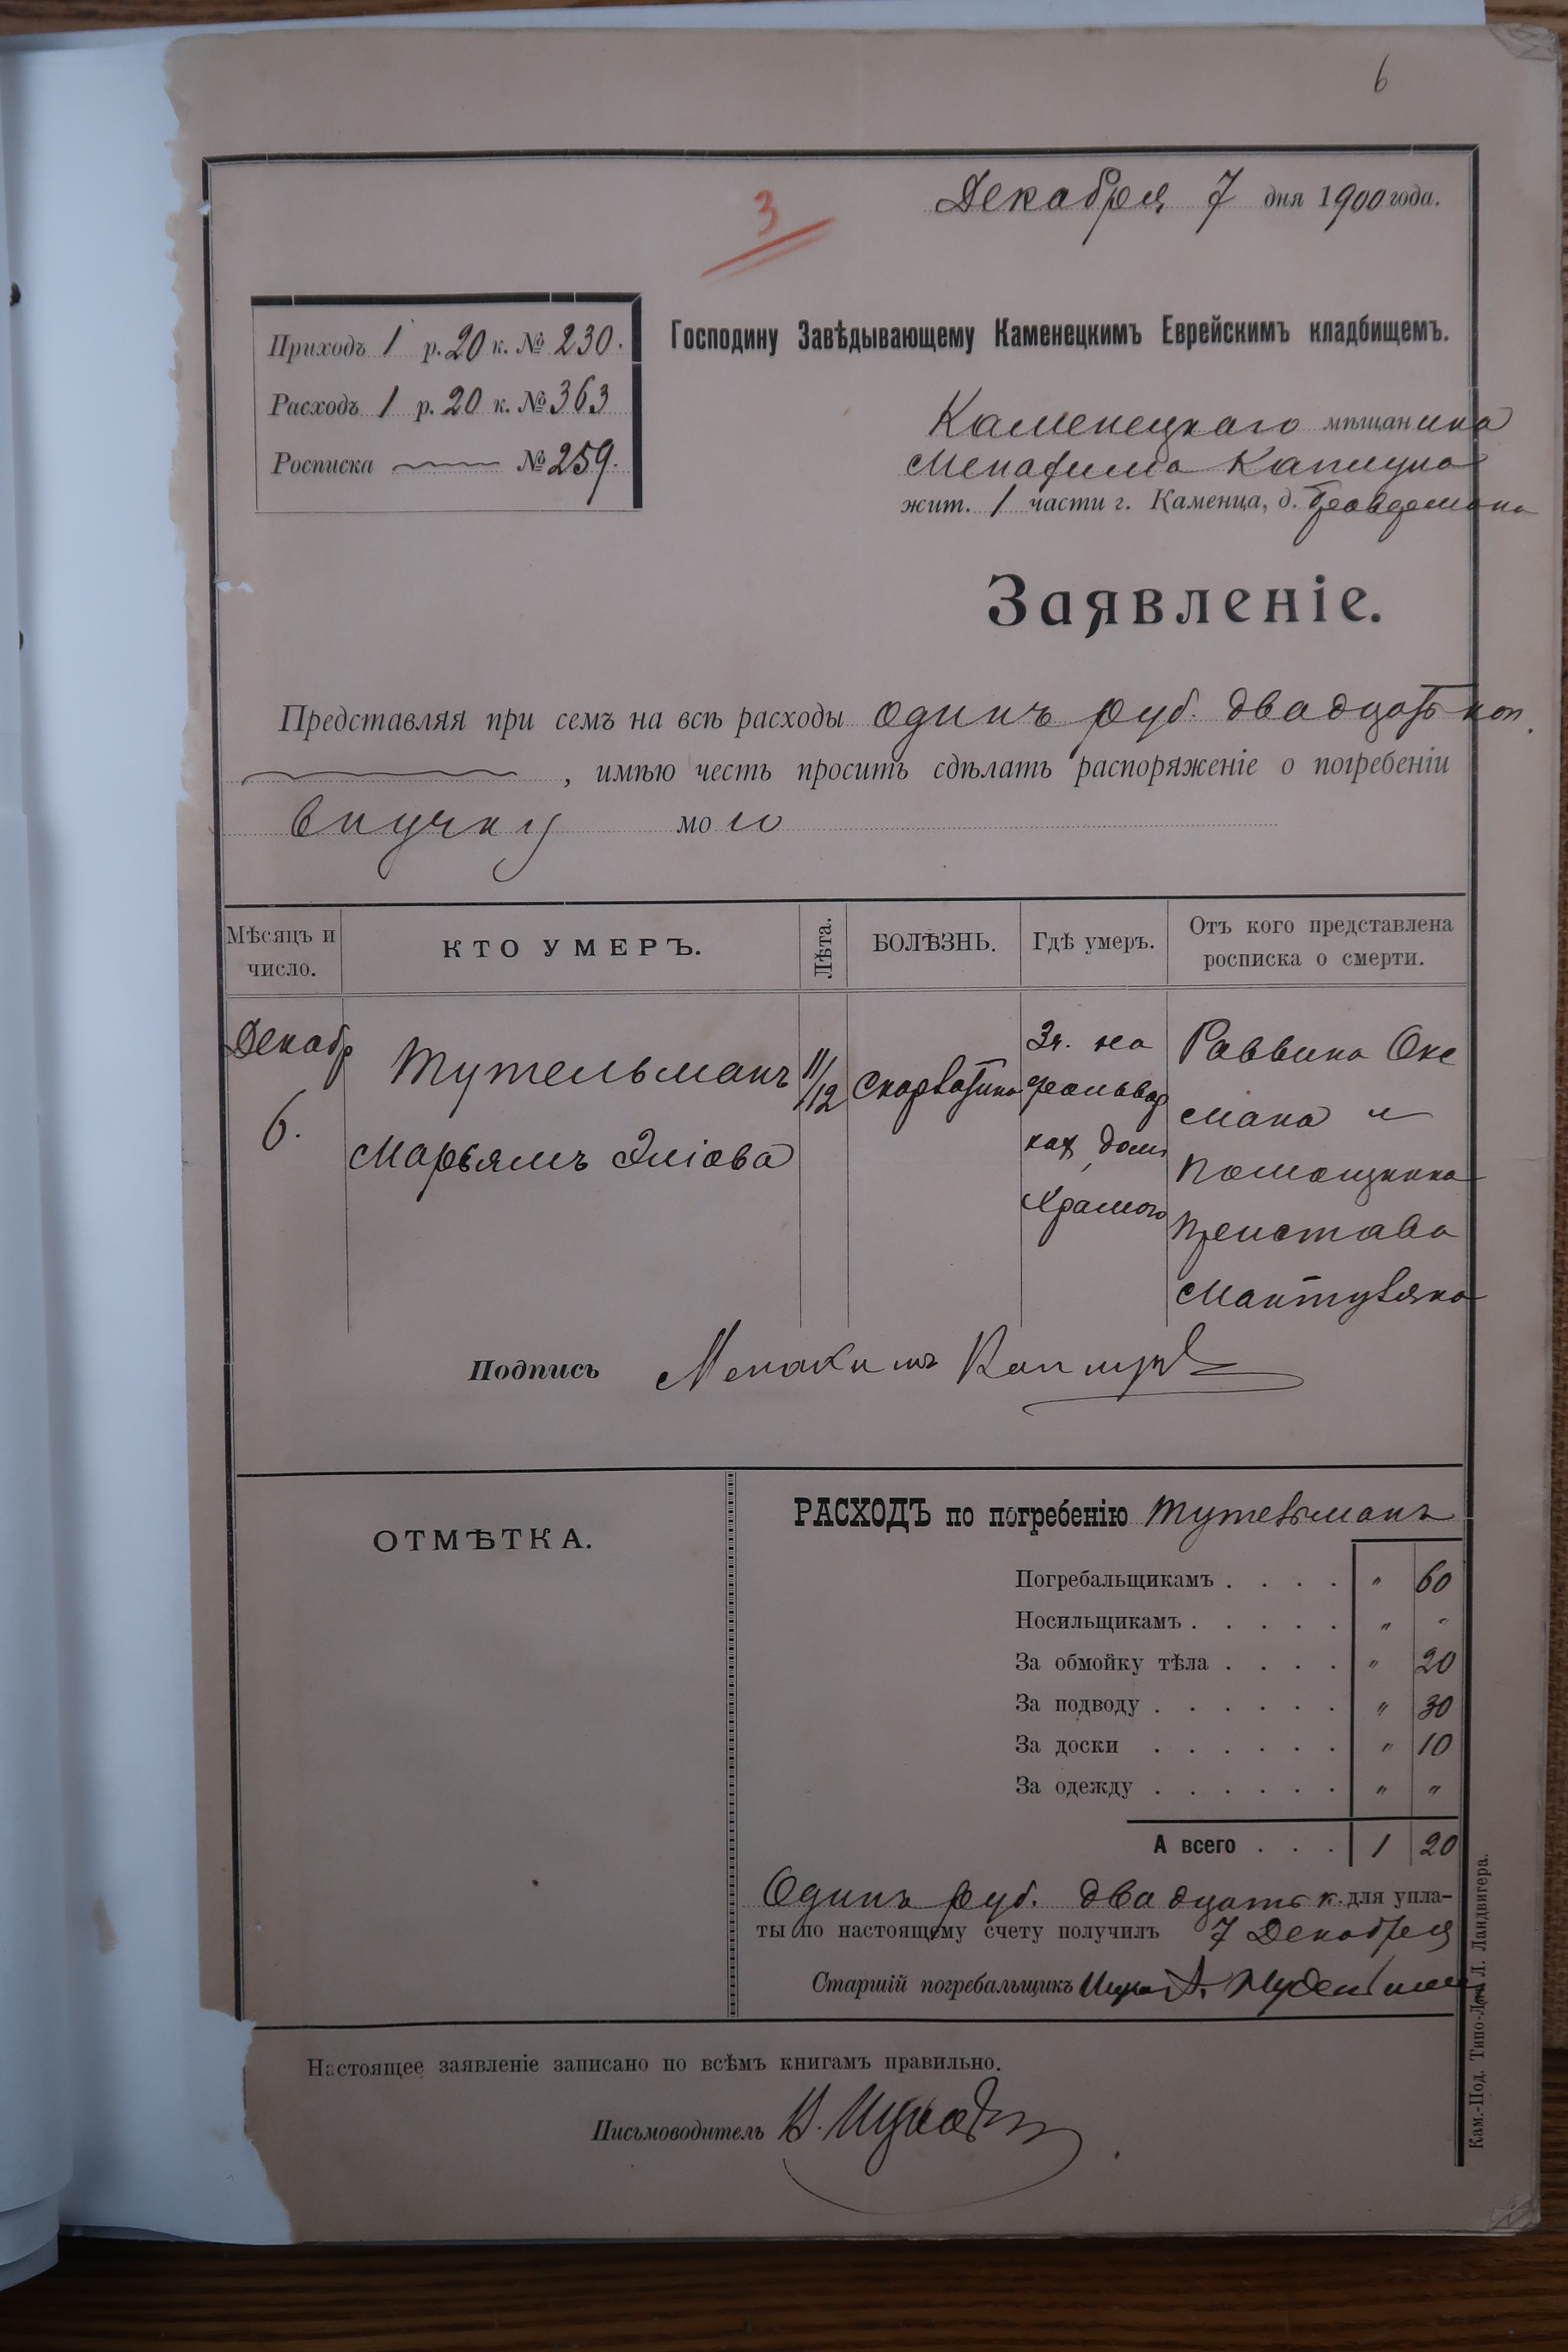 6
3
Декабря 7 дня 1900 года.
Приходъ 1 р. 20 к. № 230.
Расходъ 1 р. 20 к. № 363
Росписка № 259.
Господину Завѣдывающему Каменецкимъ Еврейскимъ кладбищемъ.
Каменецкаго мѣщанина
Менахима
жит. 1 части г. Каменца, д.
Заявленіе.
Представляя при семъ на всѣ расходы одинъ руб. двадцать коп.
, имѣю честь просить сдѣлать распоряженіе о погребеніи
внучку мою
Мѣсяцъ и число.
КТО УМЕРЪ.
Лѣта.
БОЛѢЗНЬ.
Гдѣ умеръ.
Отъ кого представлена росписка о смерти.
Декабр
6.
Тутельманъ
Марьямъ Эліова
11/12
Скарлатина
3ч. на
фольвар
ках дом
Храмого
Раввина Окс
мана и
Помощника
Пристава
Подпись Менахимъ
ОТМѢТКА.
РАСХОДЪ по погребенію Тутельманъ
Погребальщикамъ . . . . " 60
Носильщикамъ . . . . . " "
За обмойку тѣла . . . . " 20
За подводу . . . . . . " 30
За доски . . . . . . " 10
За одежду . . . . . . " "
А всего . . . 1 20
Одинъ руб. двадцать к. для упла-
ты по настоящему счету получилъ 7 Декабря
Старшій погребальщикъ
Настоящее заявленіе записано по всѣмъ книгамъ правильно.
Письмоводитель
Кам.-Под. Типо-Лит. Л. Ландвигера.